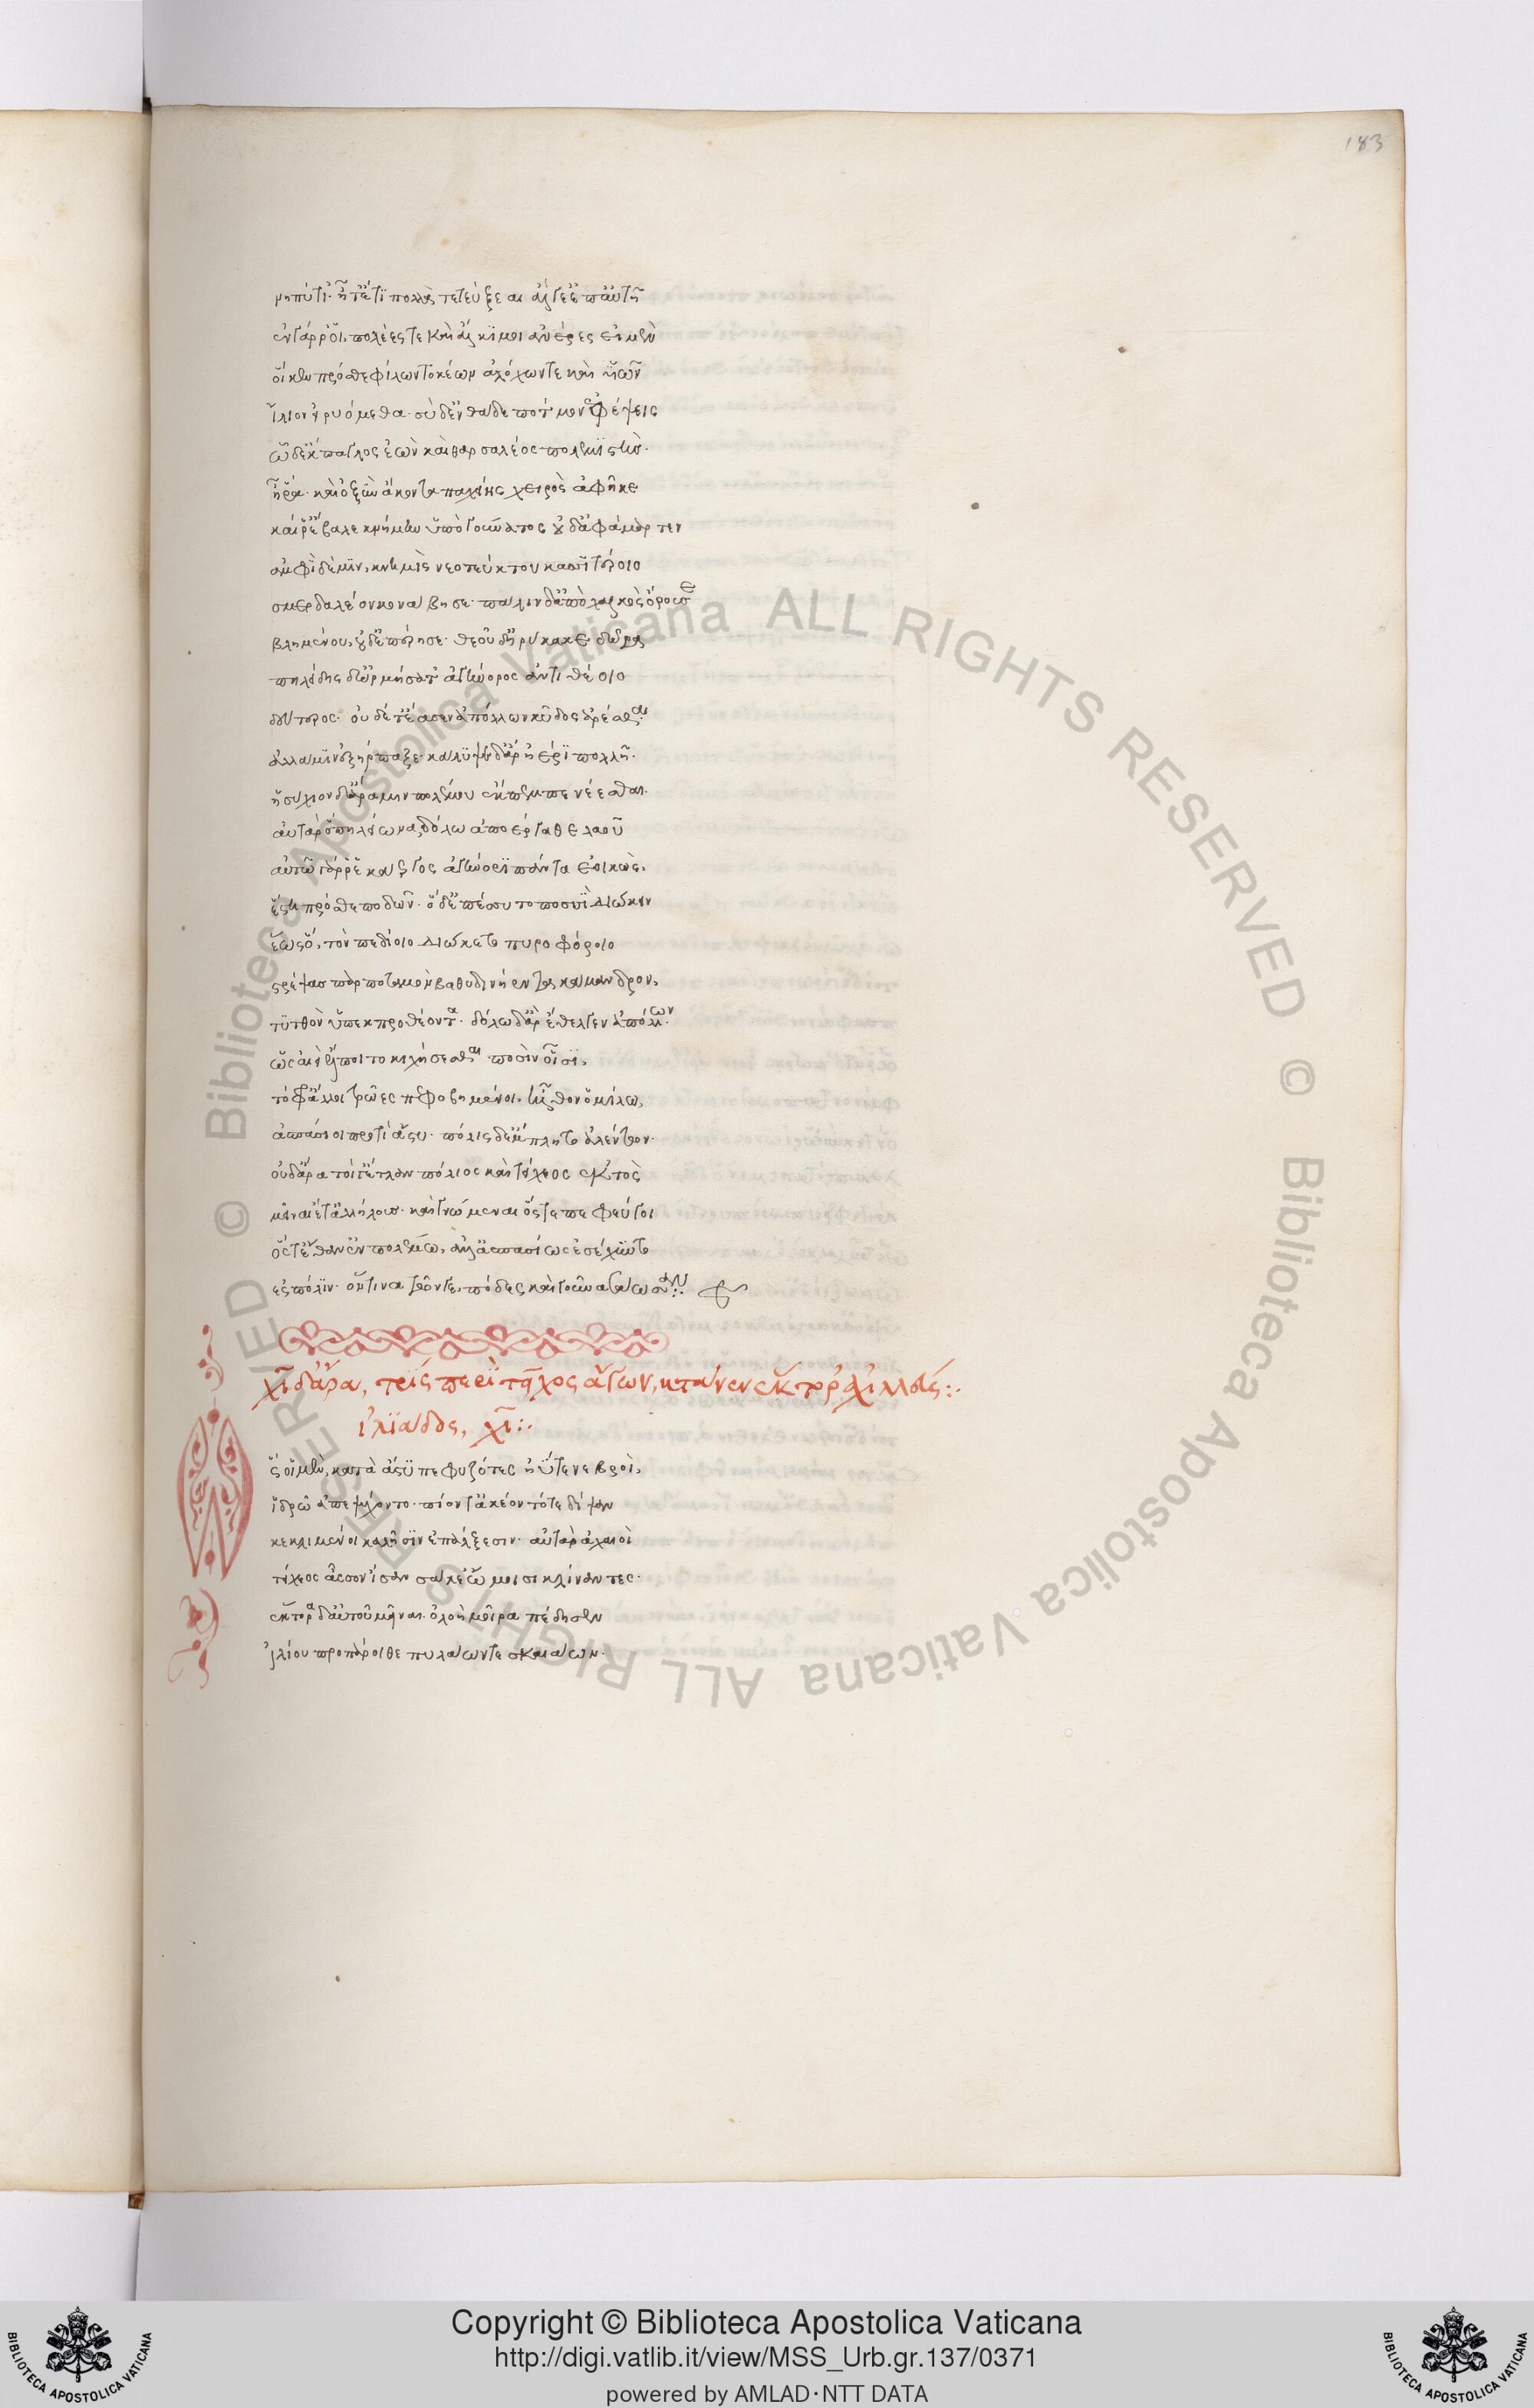 183
νηπύτι'· ἦ τ' ἔτι πολλὰ τετεύξεται ἄλγε' ἐπ' αὐτῆ
ἐν γάρ οἱ πολέες τε καὶ ἄλκιμοι ἀνέρες εἰμὲν
οἳ καὶ πρόσθε φίλων τοκέων ἀλόχων τε καὶ υἱῶν
ἴλιον εἰρυόμεθα· σὺ δ' ἐνθάδε πότμον ἐφέψεις
ὧδ' ἔκπαγλος ἐὼν καὶ θαρσαλέος πολεμιστής·
ἦ ῥα· καὶ ὀξὺν ἄκοντα βαρείης χειρὸς ἀφῆκε
καί ῥ' ἔβαλε κνήμην ὑπὸ γούνατος οὐδ' ἀφάμαρτεν
ἀμφὶ δέ μιν κνημὶς νεοτεύκτου κασσιτέροιο
σμερδαλέον κονάβησε· πάλιν δ' ἀπὸ χαλκὸς ὄρουσε
βλημένου, οὐδ' ἐπέρησε· θεοῦ δ' ἠρύκακε δῶρα
πηλείδης δ' ὡρμήσατ' ἀγήνορος ἀντιθέοιο
δεύτερος· οὐδέ τ' ἔασεν ἀπόλλων κῦδος ἀρέσθαι·
ἀλλά μιν ἐξήρπαξε· κάλυψε δ' ἄρ' ἠέρι πολλῆ·
ἡσύχιον δ' ἄρα μιν πολέμου ἔκπεμπε νέεσθαι·
αὐτὰρ ὁ πηλείωνα δόλω ἀποέργαθε λαοῦ
αὐτῶ γάρ ῥ' ἑκάεργος ἀγήνορι πάντα ἐοικὼς,
ἔστη πρόσθε ποδῶν· ὁ δ' ἐπέσσυτο ποσσὶ διώκειν
ἕως ὁ, τὸν πεδίοιο διώκετο πυροφόροιο
στρέψας πὰρ ποταμὸν βαθυδινήεντα σκάμανδρον,
τυτθὸν ὑπεκπροθέοντα· δόλω δ' ἄρ' ἔθελγεν ἀπόλλων·
ὡς αἰεὶ ἔλποιτο κιχήσεσθαι ποσὶν οἷσι,
τόφρ' ἄλλοι τρῶες πεφοβημένοι, ἦλθον ὁμίλω,
ἀσπάσιοι προτὶ ἄστυ· πόλις δ' ἔμπλητο ἀλέντων·
οὐδ' ἄρα τοί γ' ἔτλαν πόλιος καὶ τείχεος ἐκτὸς
μεῖναι ἔτ' ἀλλήλους· καὶ γνώμεναι ὅς τε πεφεύγοι
ὅς τ' ἔθαν' ἐν πολέμω, ἀλλ' ἀσπασίως ἐσέχυντο
ἐς πόλιν· ὅντινα τῶν γε, πόδες καὶ γοῦνα σαώσαν:·
χῖ δ' ἄρα, τρὶς περὶ τεῖχος ἄγων, κτάνεν ἕκτορ' ἀχιλλεύς:·
ἰλιάδος, χῖ:·
ὣς οἱ μὲν, κατὰ ἄστυ πεφυζότες ἠΰτε νεβροὶ,
ἱδρῶ ἀπεψύχοντο· πίον τ' ἀκέοντό τε δίψαν
κεκλιμένοι καλῆσιν ἐπάλξεσιν· αὐτὰρ ἀχαιοὶ
τείχεος ἆσσον ἴσαν σάκε' ὤμοισι κλίναντες·
ἕκτορα δ' αὐτοῦ μεῖναι ὀλοὴ μοῖρα πέδησεν
ἰλίου προπάροιθε πυλάων τε σκαιάων·
Copyright © Biblioteca Apostolica Vaticana
http://digi.vatlib.it/view/MSS_Urb.gr.137/0371
powered by AMLAD·NTT DATA
BIBLIOTECA APOSTOLICA VATICANA
BIBLIOTECA APOSTOLICA VATICANA
© Biblioteca Apostolica Vaticana ALL RIGHTS RESERVED © Biblioteca Apostolica Vaticana ALL RIGHTS RESERVED